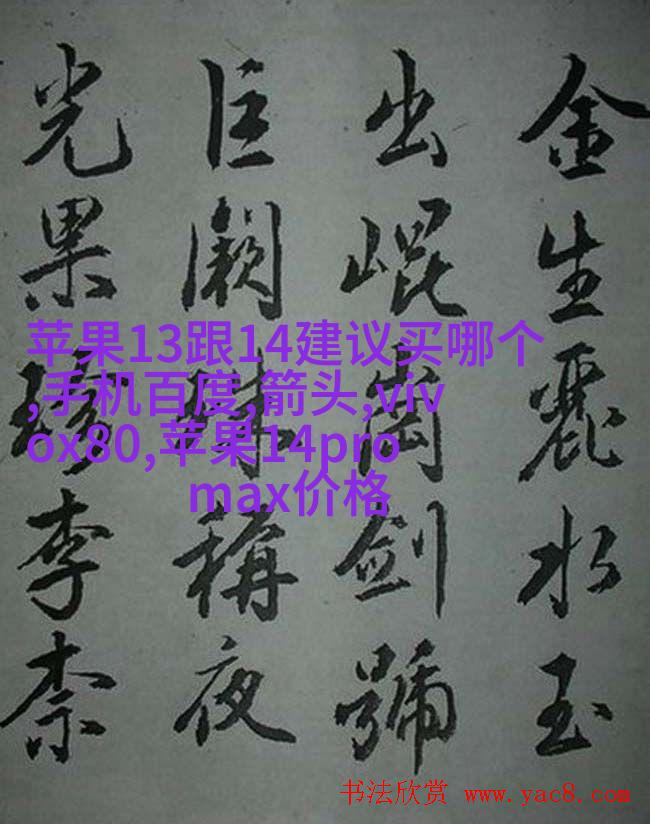 金生麗水玉
出崐崗劍號
巨闕珠稱夜
光果珍李柰
苹果13跟14建议买哪个
,手机百度,箭头,viv
ox80,苹果14pro
max价格
书法欣赏 www.yac8.com